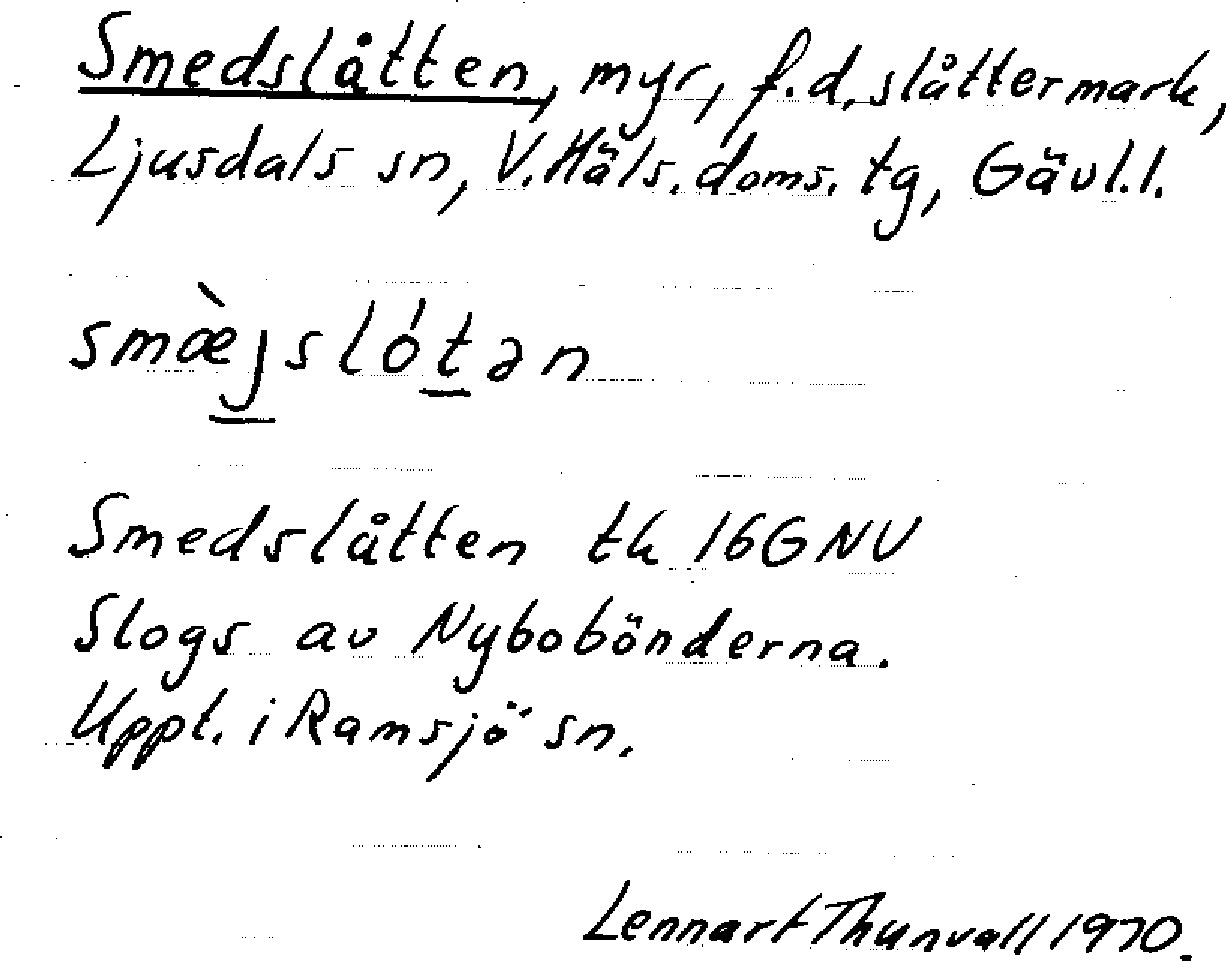 Smedslåtten, myr, f.d. slåttermark,
Ljusdals sn, V. Häls. doms. tg, Gävl.l.
smæ̀jslót̲ən
Smedslåtten tk 16GNV
Slogs av Nybobönderna.
Uppt. i Ramsjö sn.
Lennart Thunvall 1970.